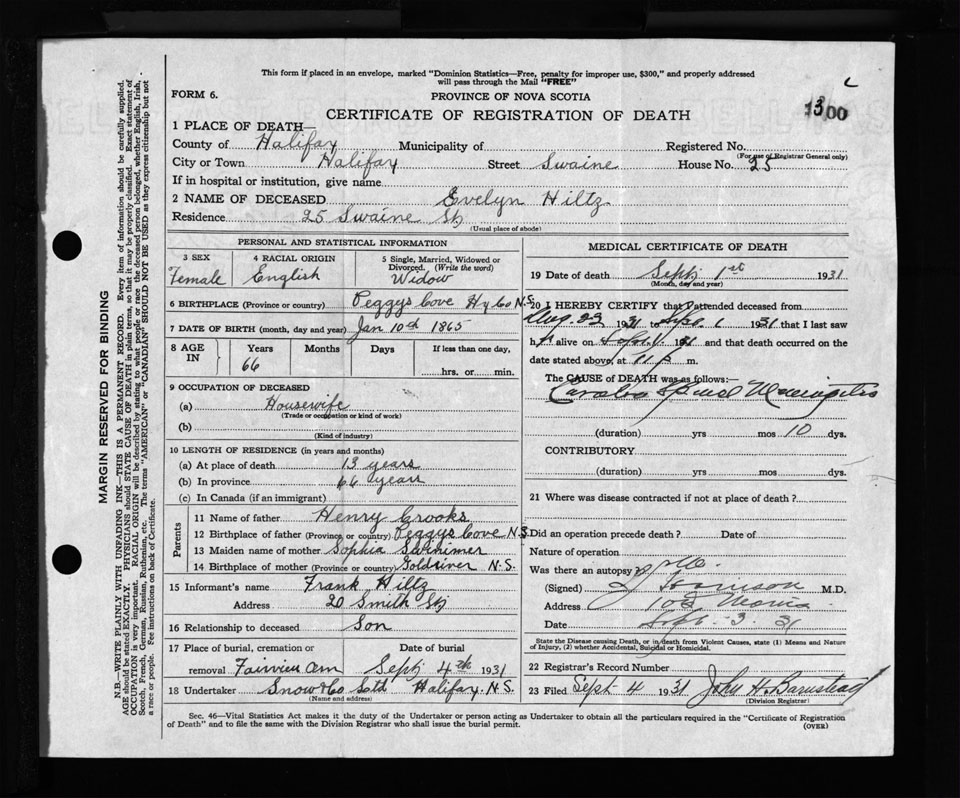 This form if placed in an envelope, marked "Dominion Statistics—Free, penalty for improper use, $300," and properly addressed
will pass through the Mail "FREE"
FORM 6.
PROVINCE OF NOVA SCOTIA
1300
CERTIFICATE OF REGISTRATION OF DEATH
1 PLACE OF DEATH—
County of Halifax Municipality of Registered No.
(For use of Registrar General only)
City or Town Halifax Street Swaine House No. 25
If in hospital or institution, give name
2 NAME OF DECEASED Evelyn Hiltz
Residence 25 Swaine St
(Usual place of abode)
PERSONAL AND STATISTICAL INFORMATION
3 SEX 4 RACIAL ORIGIN 5 Single, Married, Widowed or Divorced. (Write the word)
Female English Widow
6 BIRTHPLACE (Province or country) Peggys Cove Hx Co N.S.
7 DATE OF BIRTH (month, day and year) Jan 10th 1865
8 AGE IN Years Months Days If less than one day,
66 hrs. or min.
9 OCCUPATION OF DECEASED
(a) Housewife
(Trade or occupation or kind of work)
(b)
(Kind of industry)
10 LENGTH OF RESIDENCE (in years and months)
(a) At place of death 13 years
(b) In province 66 years
(c) In Canada (if an immigrant)
Parents
11 Name of father Henry Crooks
12 Birthplace of father (Province or country) Peggys Cove N.S.
13 Maiden name of mother Sophia
14 Birthplace of mother (Province or country) N.S.
15 Informant's name Frank Hiltz
Address 20 Smith St
16 Relationship to deceased Son
17 Place of burial, cremation or removal Date of burial
Fairview Sept 4th 1931
18 Undertaker Snow & Co Ltd Halifax N.S.
(Name and address)
MEDICAL CERTIFICATE OF DEATH
19 Date of death Sept 1st 1931
(Month, day and year)
20 I HEREBY CERTIFY that I attended deceased from
Aug. 23 1931 to Sept. 1 1931 that I last saw
h alive on Sept 1 1931 and that death occurred on the
date stated above, at 11 m.
The CAUSE of DEATH was as follows:
Cerebro Spinal Meningitis
(duration) yrs mos 10 dys.
CONTRIBUTORY
(duration) yrs mos dys.
21 Where was disease contracted if not at place of death?
Did an operation precede death? Date of
Nature of operation
Was there an autopsy? No
(Signed) M.D.
Address Morris
Date Sept. 3. 31
State the Disease causing Death, or in death from Violent Causes, state (1) Means and Nature
of Injury, (2) whether Accidental, Suicidal or Homicidal.
22 Registrar's Record Number
23 Filed Sept 4 1931 John H. Barnstead
(Division Registrar)
Sec. 46—Vital Statistics Act makes it the duty of the Undertaker or person acting as Undertaker to obtain all the particulars required in the "Certificate of Registration
of Death" and to file the same with the Division Registrar who shall issue the burial permit.
(OVER)
MARGIN RESERVED FOR BINDING
N.B.—WRITE PLAINLY WITH UNFADING INK—THIS IS A PERMANENT RECORD. Every item of information should be carefully supplied.
AGE should be stated EXACTLY. PHYSICIANS should STATE CAUSE OF DEATH in plain terms, so that it may be properly classified. Exact statement of
OCCUPATION is very important. RACIAL ORIGIN will be described by stating to what people or race the deceased person belonged, whether English, Irish,
Scotch, French, German, Russian, Ruthenian, etc. The terms "AMERICAN" or "CANADIAN" SHOULD NOT BE USED as they express citizenship but not
a race or people. Fee instructions on back of Certificate.